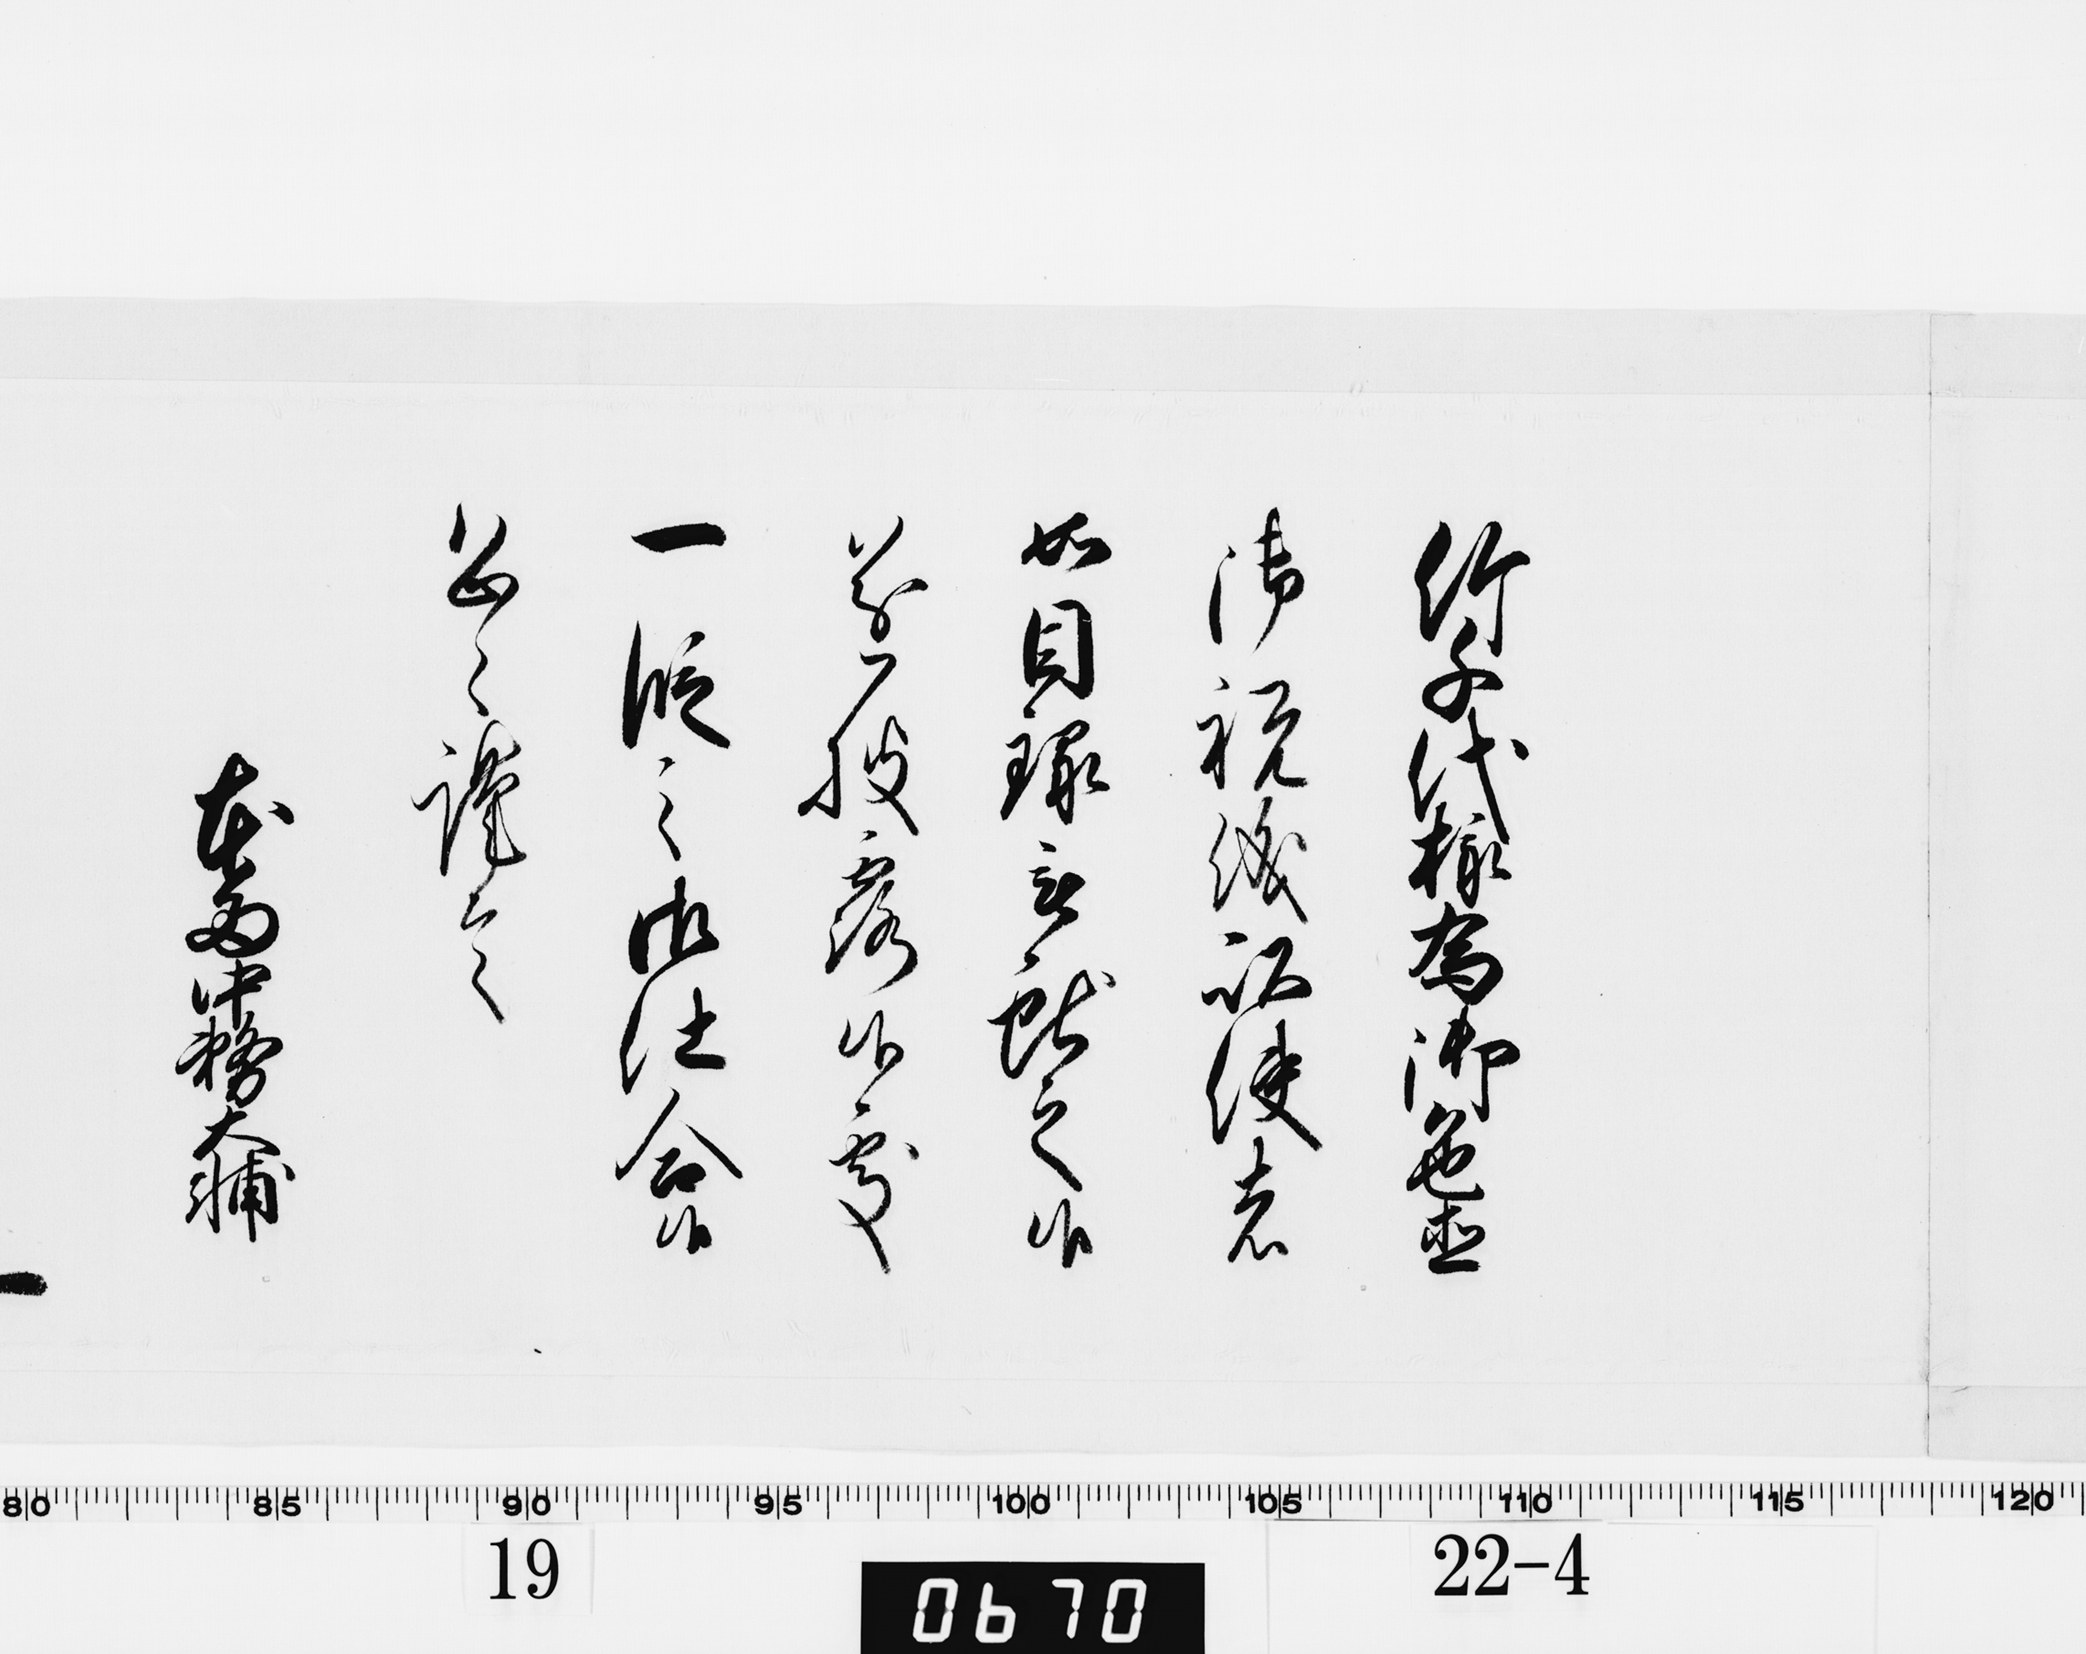 竹千代様為御色直
御祝儀以使者
如目録被献之候
並披露候処
一段之御仕合候
恐々謹言
本多中務大輔
一
80 85 90 95 100 105 110 115 120
19
0670
22-4